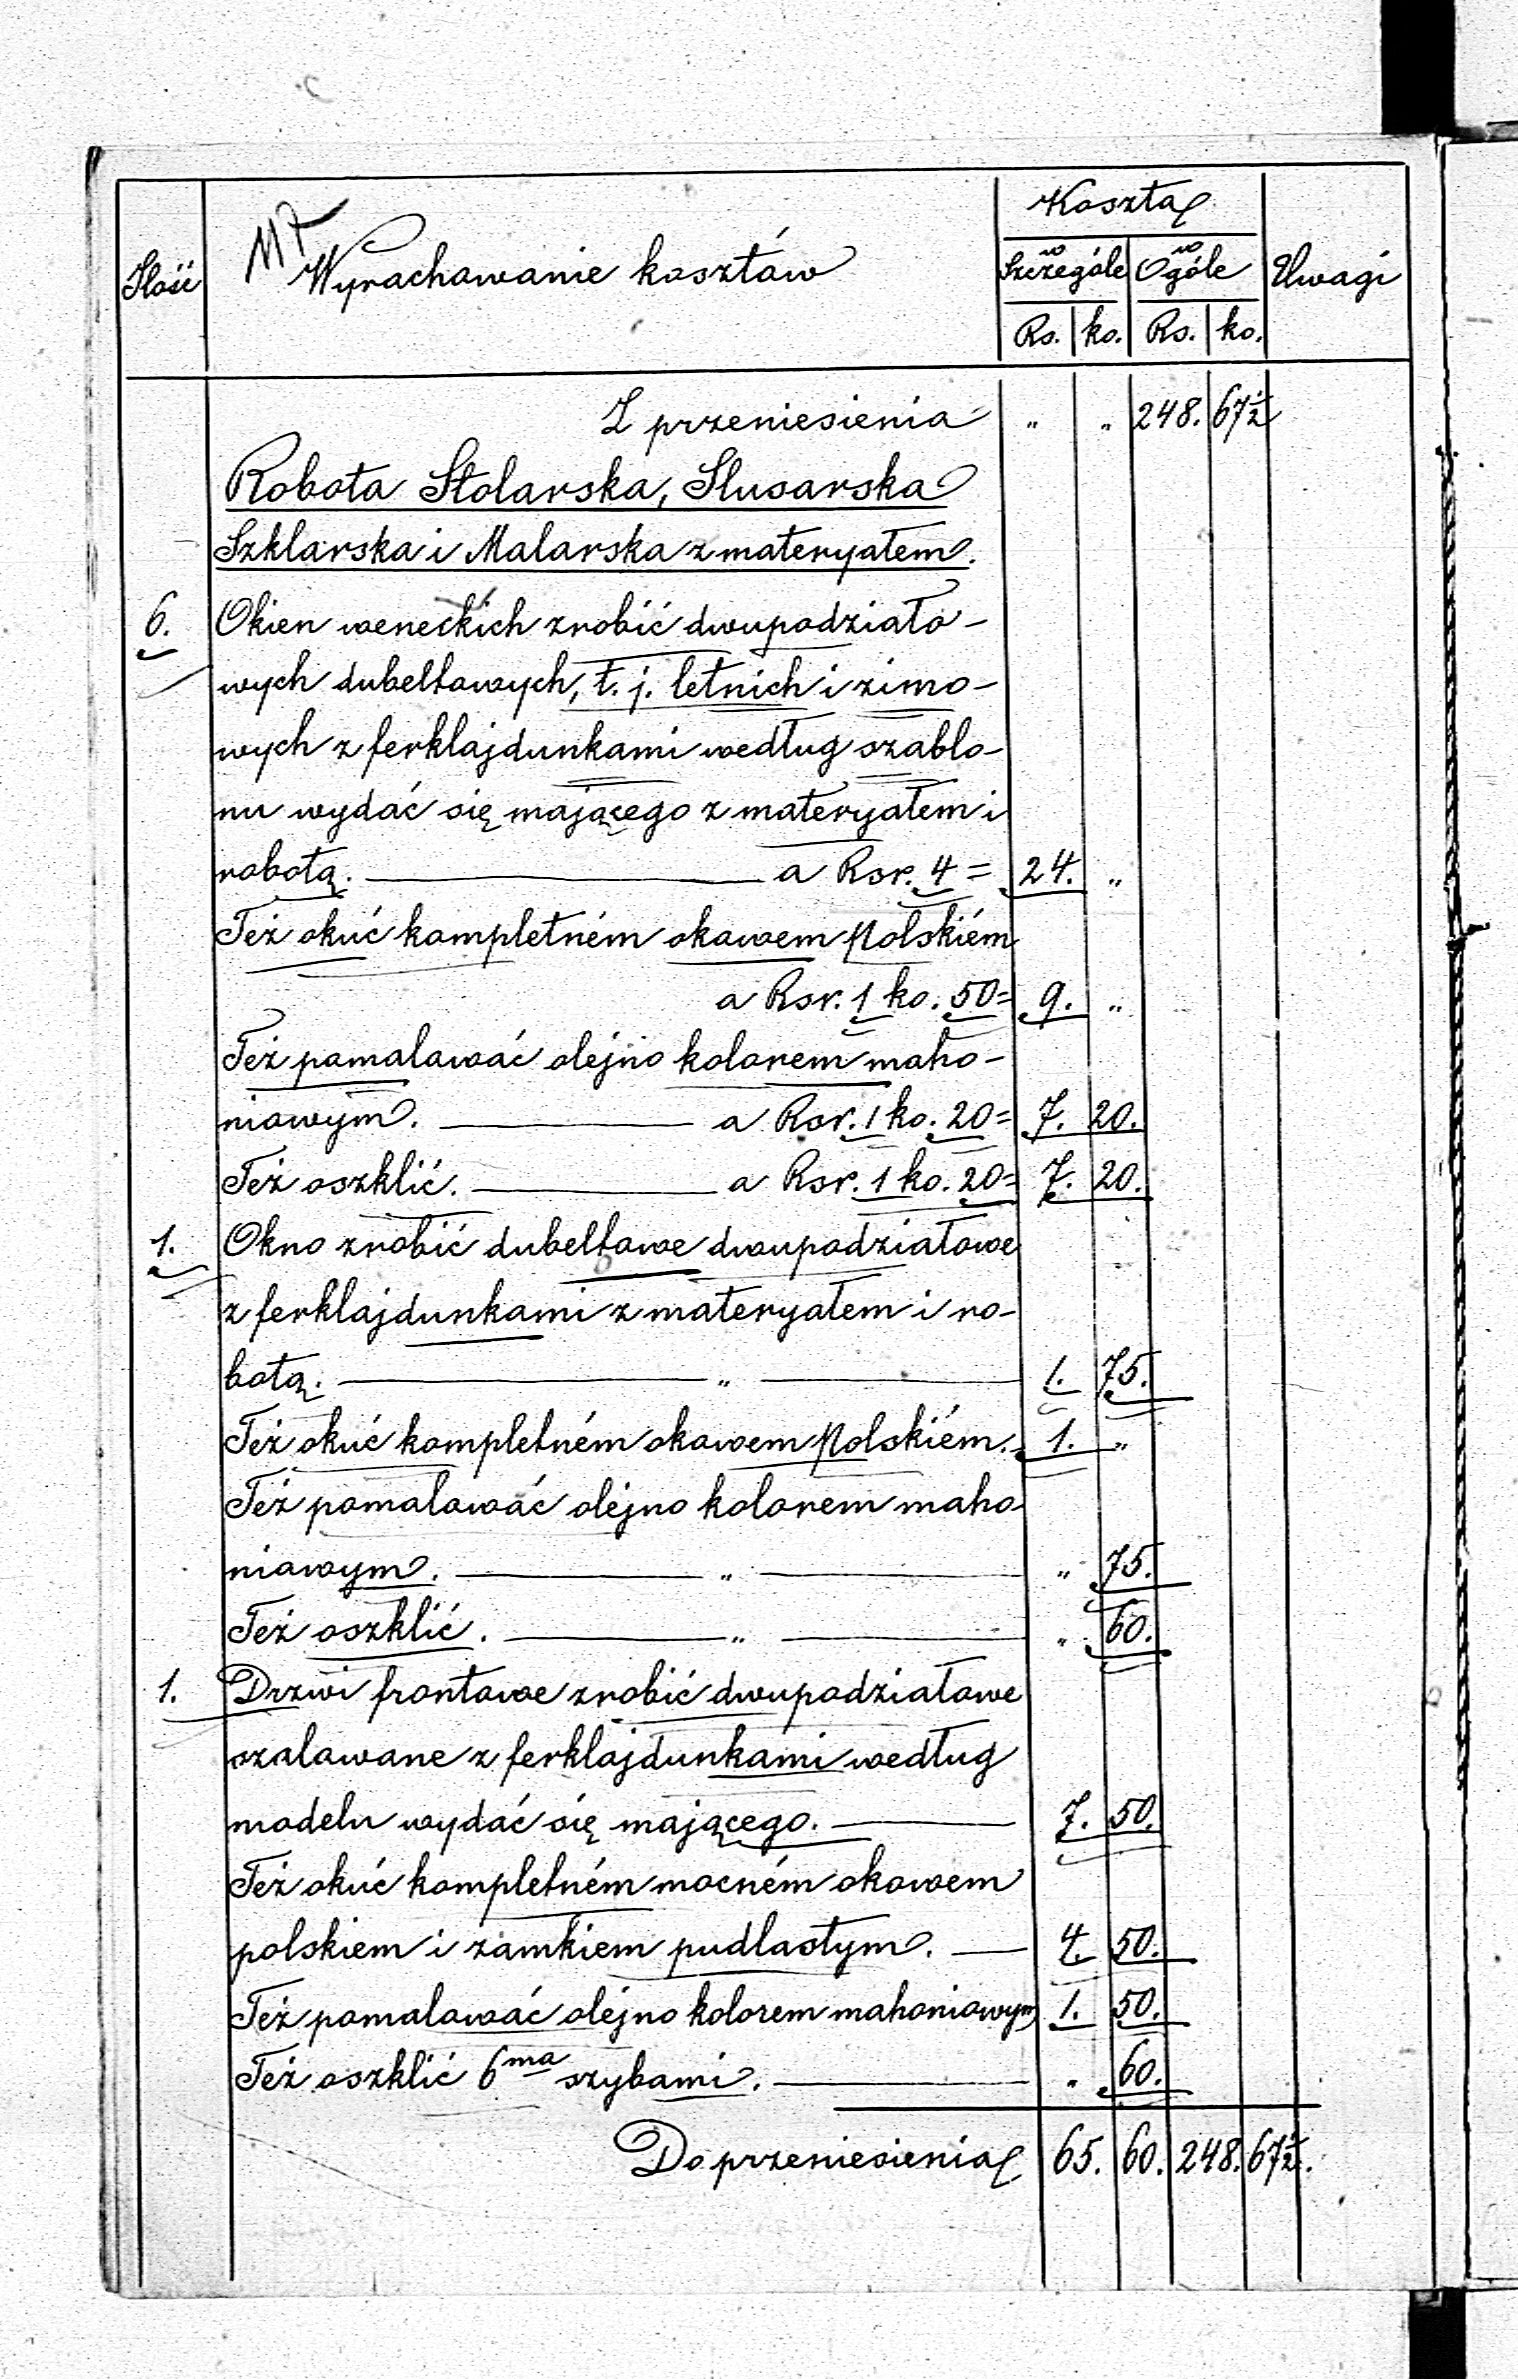 Koszta
Ilość Wyrachowanie kosztów w Szczególe w Ogóle Uwagi
Rs. ko. Rs. ko.
Z przeniesienia " " 248. 67½
Robota Stolarska, Slusarska
Szklarska i Malarska z materyałem.
6. Okien weneckich zrobić dwupodziało-
wych dubeltowych, t. j. letnich i zimo-
wych z ferklajdunkami według szablo-
nu wydać się mającego z materyałem i
robotą. a Rsr. 4 = 24. "
Też okuć kompletném okowem Polskiém
a Rsr. 1 ko. 50 = 9. "
Też pomalować olejno kolorem maho-
niowym. a Rsr. 1 ko. 20 = 7. 20.
Też oszklić. a Rsr. 1 ko. 20 = 7. 20.
1. Okno zrobić dubeltowe dwupodziałowe
z ferklajdunkami z materyałem i ro-
botą. " 1. 75.
Też okuć kompletném okowem Polskiém. 1. "
Też pomalować olejno kolorem maho-
niowym. " " 75.
Też oszklić. " " 60.
1. Drzwi frontowe zrobić dwupodziałowe
szalowane z ferklajdunkami według
modelu wydać się mającego. 7. 50.
Też okuć kompletném mocném okowem
polskiem i zamkiem pudlastym. 4. 50.
Też pomalować olejno kolorem mahoniowym 1. 50.
Też oszklić 6ma szybami. " 60.
Do przeniesienia 65. 60. 248. 67½.